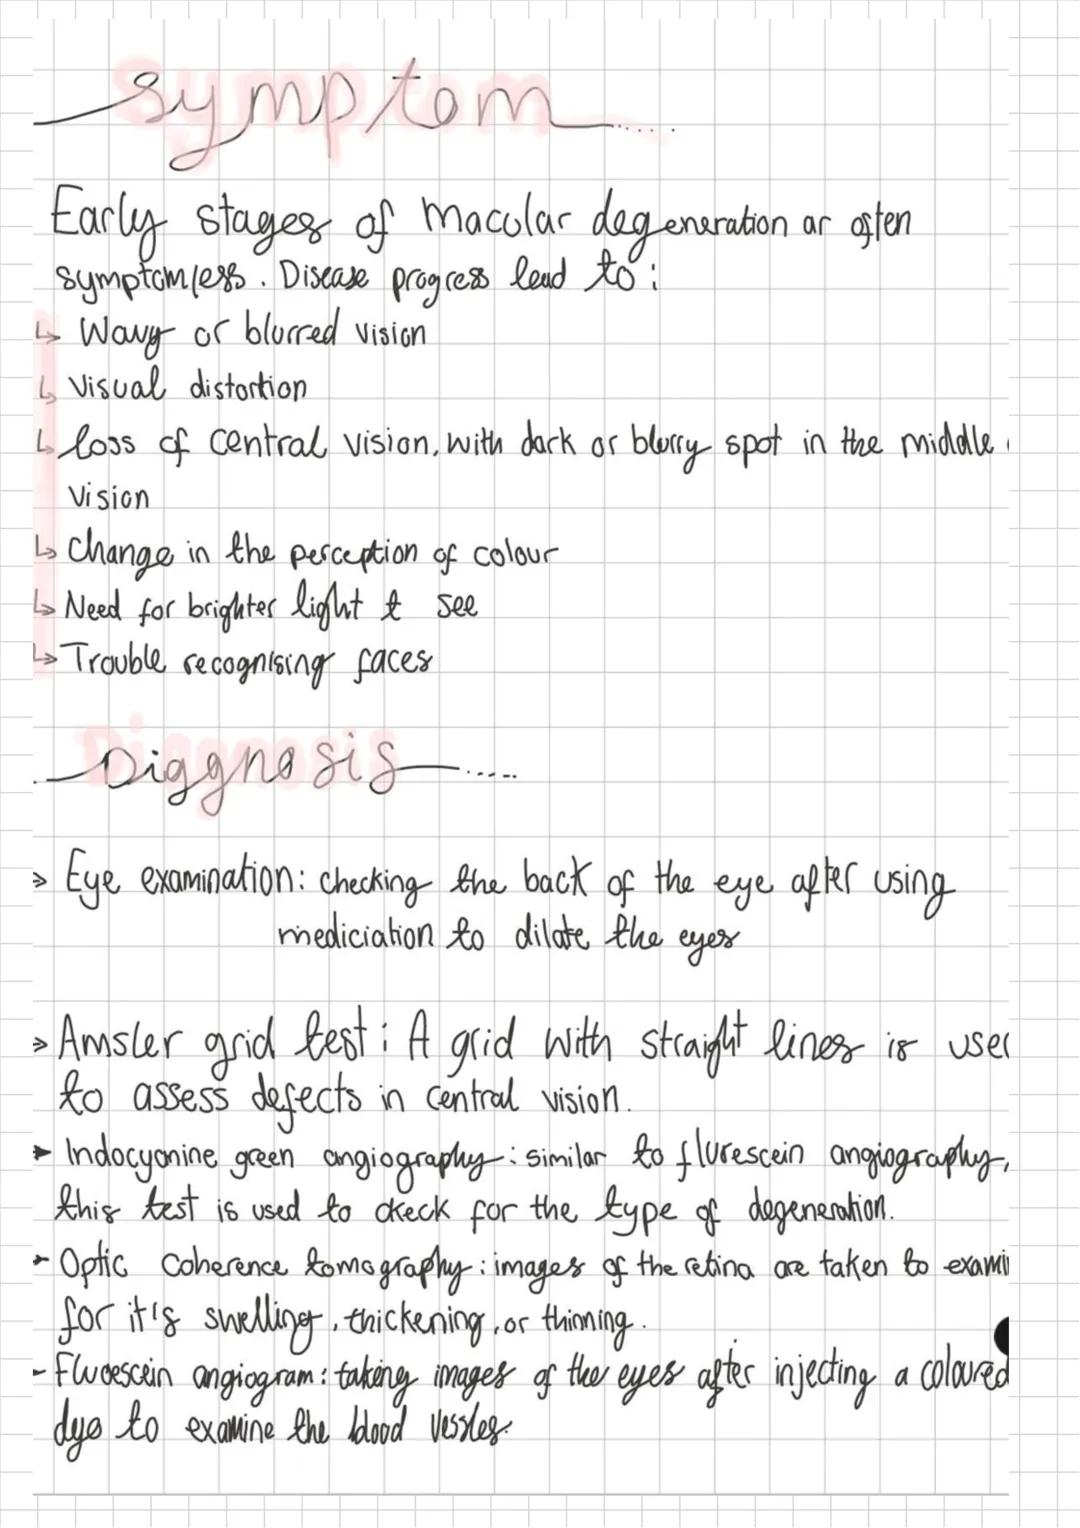 Symptom
Early stages of macular degeneration ar often
symptomless. Disease progress lead to:
↳ Wavy or blurred vision
↳ Visual distortion
↳ loss of central vision, with dark or blurry spot in the middle
vision
↳ Change in the perception of colour
↳ Need for brighter light t see
↳ Trouble recognising faces
Diggnosis
> Eye examination: checking the back of the eye after using
mediciation to dilate the eyes
> Amsler grid test: A grid with straight lines is used
to assess defects in central vision.
➤ Indocyanine green angiography: similar to flurescein angiography,
this test is used to check for the type of degeneration.
➤ Optic Coherence tomography: images of the retina are taken to exami
for it's swelling, thickening, or thinning.
- Fluoescein angiogram: taking images of the eyes after injecting a coloured
dye to examine the blood vessles.